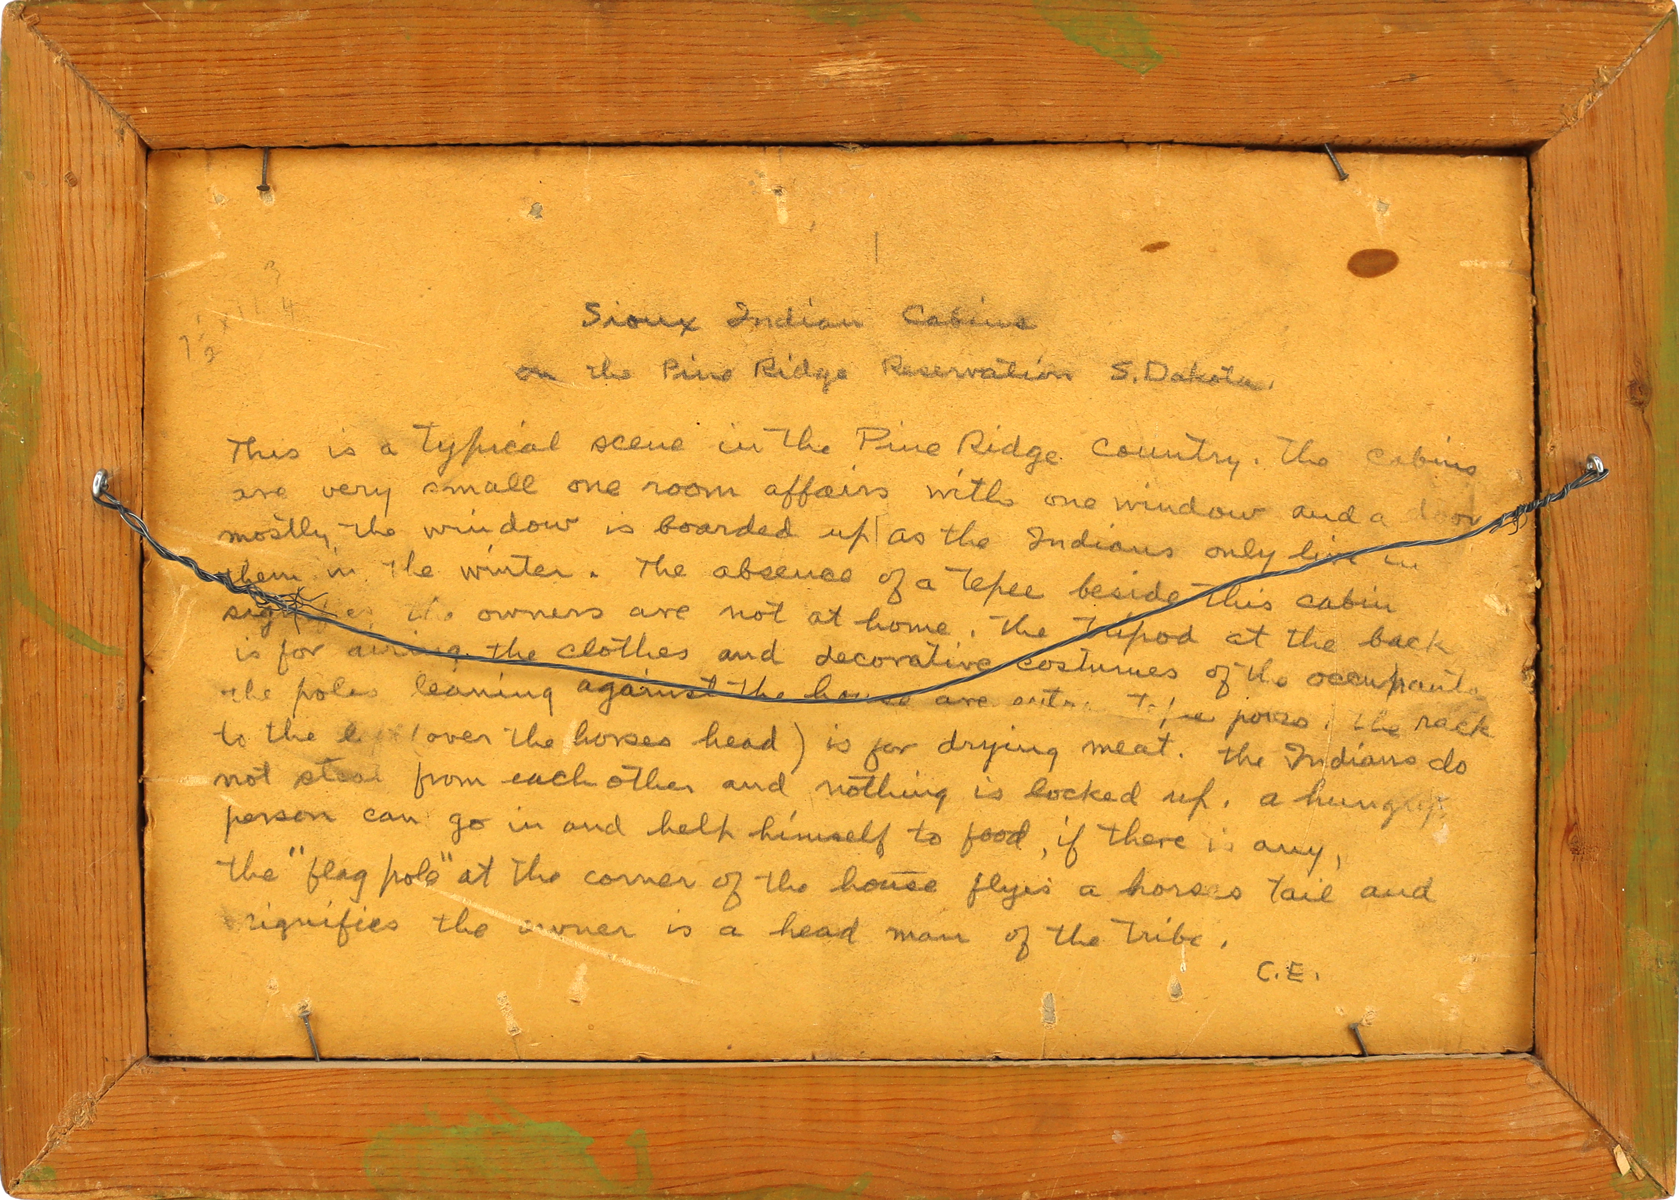 3
7 1/2 x 11 4
Sioux Indian Cabins
on the Pine Ridge Reservation S. Dakota.
This is a typical scene in the Pine Ridge Country. The cabins
are very small one room affairs with one window and a door
mostly the window is boarded up as the Indians only live in
them in the winter. The absence of a tepee beside this cabin
signifies the owners are not at home. The tripod at the back
is for airing the clothes and decorative costumes of the occupants
the poles leaning against the house are extra poles. The rack
to the (over the horses head) is for drying meat. the Indians do
not steal from each other and nothing is locked up. a hungry
person can go in and help himself to food, if there is any,
the "flag pole" at the corner of the house flys a horses tail and
signifies the owner is a head man of the tribe.
C.E.